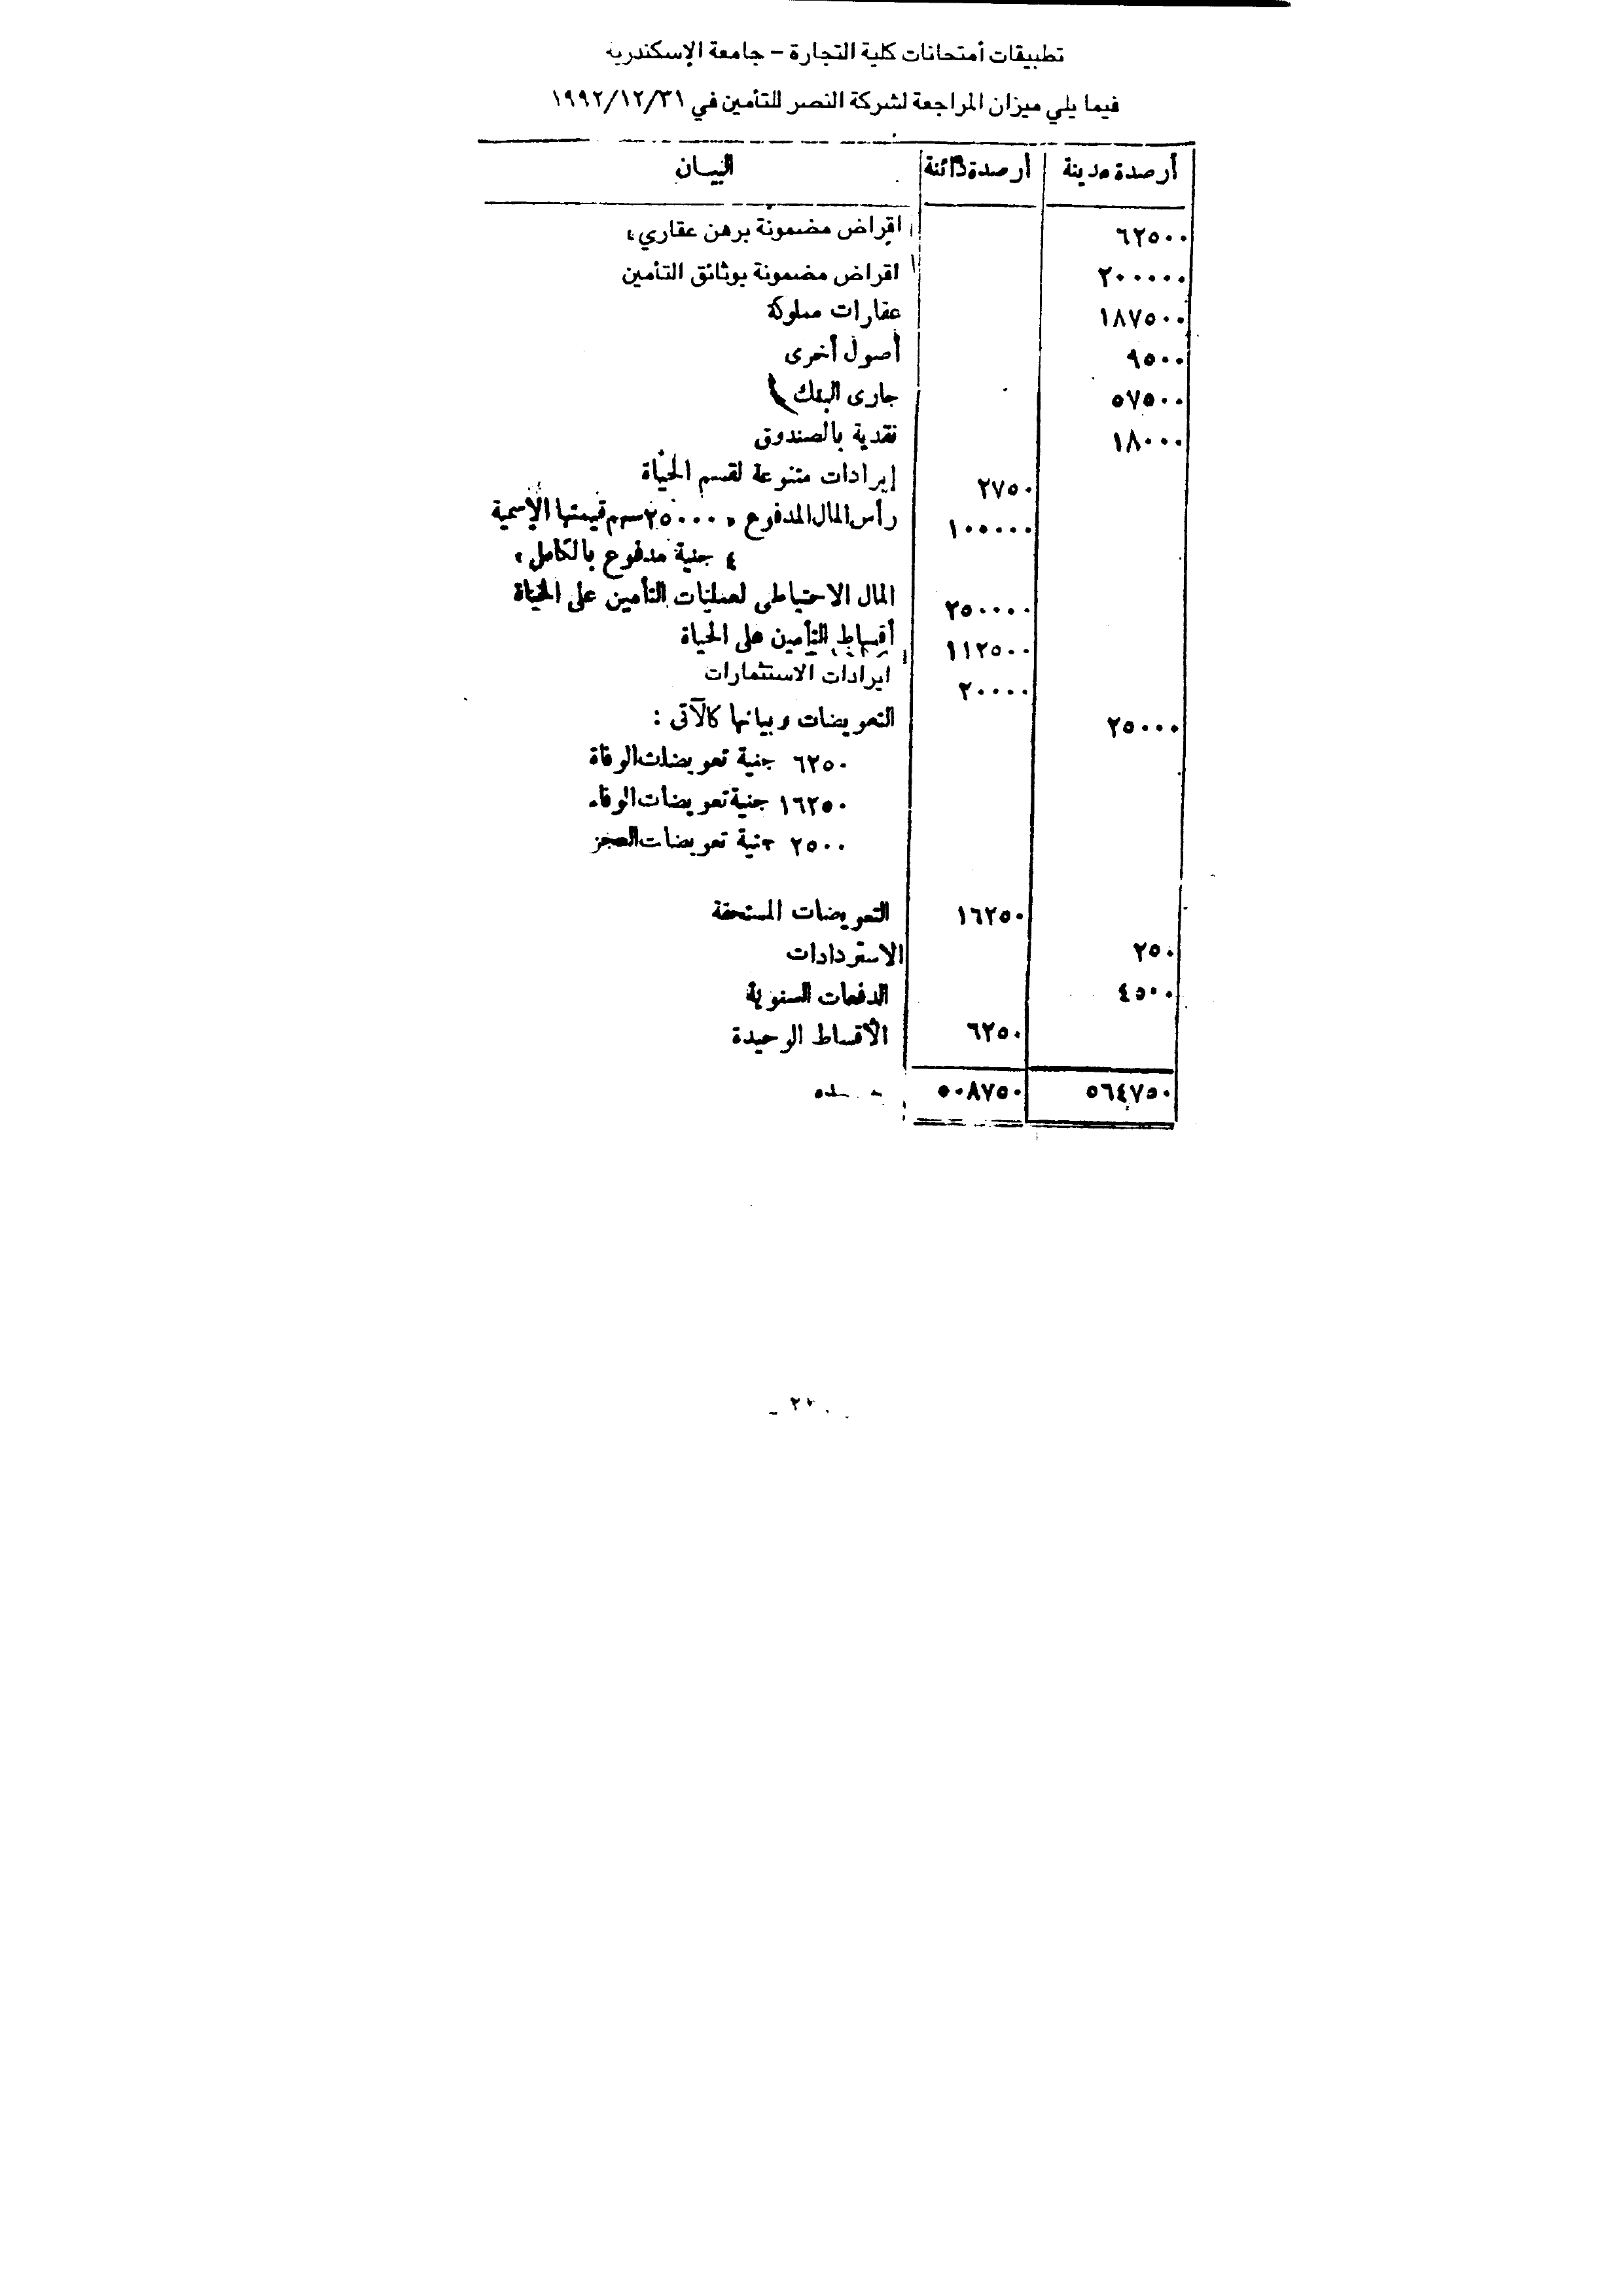 تطبيقات أمتحانات كلية التجارة – جامعة الإسكندرية
فيما يلي ميزان المراجعة لشركة النصر للتأمين في ١٩٩٢/١٢/٣١
أرصدة مدينة أرصدة دائنة البيـان
٦٢٥٠٠ اقراض مضمونة برهن عقاري
٢٠٠٠٠٠ اقراض مضمونة بوثائق التأمين
١٨٧٥٠٠ عقارات مملوكة
٩٥٠٠ أصول أخرى
٥٧٥٠٠ جارى البنك
١٨٠٠٠ نقدية بالصندوق
٢٧٥٠ إيرادات متنوعة لقسم الحياة
١٠٠٠٠٠ رأس المال المدفوع ٢٥٠٠٠ سهم قيمتها الإسمية
٤ جنية مدفوع بالكامل
٢٥٠٠٠٠ المال الاحتياطى لعمليات التأمين على الحياة
١١٢٥٠٠ أقساط التأمين على الحياة
٢٠٠٠٠ ايرادات الاستثمارات
٢٥٠٠٠ التعويضات وبيانها كالآتى :
٦٢٥٠ جنية تعويضات الوفاة
١٦٢٥٠ جنية تعويضات الوفاء
٢٥٠٠ جنية تعويضات العجز
١٦٢٥٠ التعويضات المستحقة
٢٥٠ الاستردادات
٤٥٠٠ الدفعات السنوية
٦٢٥٠ الأقساط الوحيدة
٥٦٤٧٥٠ ٥٠٨٧٥٠